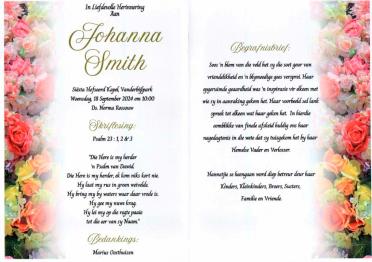 In Liefdevolle Herinnering
Aan
Johanna
Smith
Sätta Hefsoord Kapel, Vanderbijlpark
Woensdag, 18 September 2024 om 10:00
Ds. Norma Rossouw
Skriflesing:
Psalm 23 : 1, 2 & 3
'Die Here is my herder
'n Psalm van Dawid.
Die Here is my herder, ek kom niks kort nie.
Hy laat my rus in groen weivelde.
Hy bring my by waters waar daar vrede is.
Hy gee my nuwe krag.
Hy lei my op die regte paaie
tot die eer van sy Naam.'
Bedankings:
Marius Oosthuizen
Begrafnisbrief:
Soos 'n blom van die veld het sy die soet geur van
vriendelikheid en 'n blymoedige gees versprei. Haar
opgeruimde geaardheid was 'n inspirasie vir elkeen met
wie sy in aanraking gekom het. Haar voorbeeld sal lank
spreek tot elkeen wat haar geken het. In hierdie
oomblikke van finale afskeid huldig ons haar
nagedagtenis in die wete dat sy tuisgegaan het by haar
Hemelse Vader en Verlosser.
Hannetjie se heengaan word diep betreur deur haar
Kinders, Kleinkinders, Broers, Susters,
Familie en Vriende.